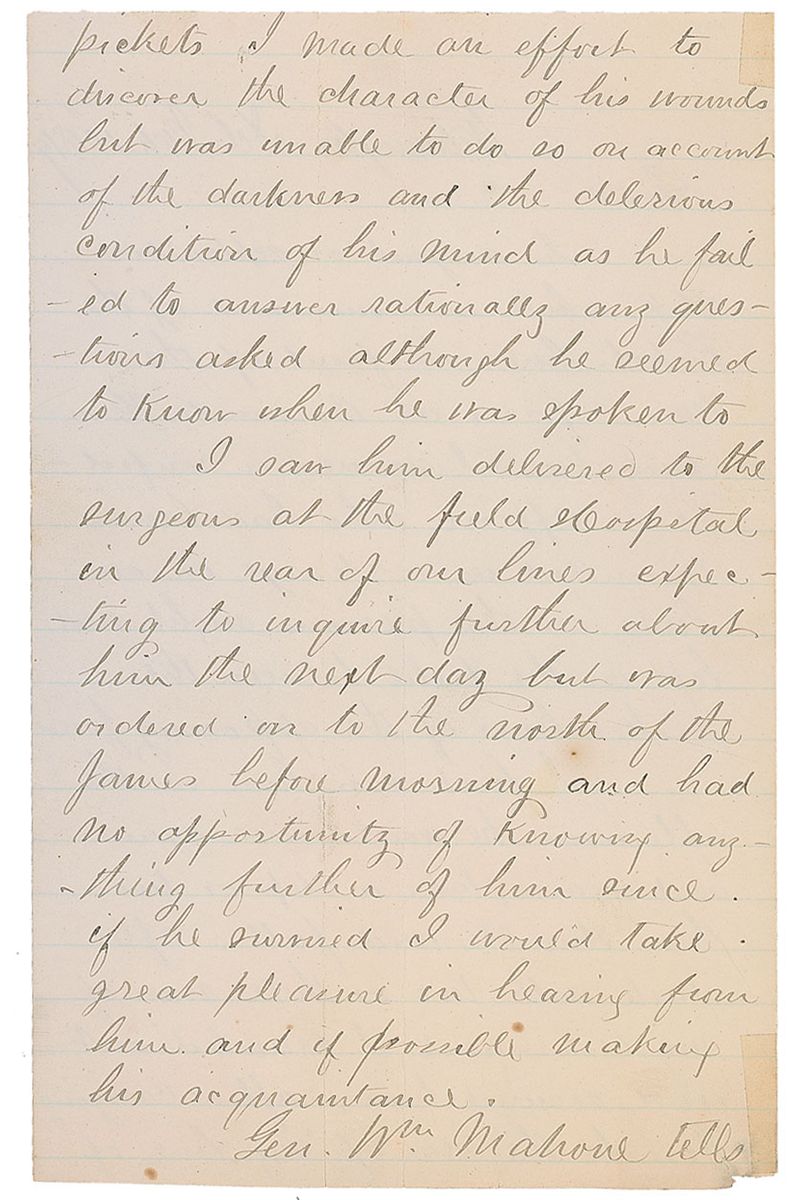 pickets I made an effort to
discover the character of his wounds
but was unable to do so on account
of the darkness and the delerious
condition of his mind as he fail
-ed to answer rationally any ques-
-tions asked although he seemed
to know when he was spoken to
I saw him delivered to the
surgeons at the field Hospital
in the rear of our lines expec-
-ting to inquire further about
him the next day but was
ordered on to the north of the
James before morning and had
no opportunity of knowing any-
-thing further of him since.
if he survived I would take
great pleasure in hearing from
him and if possible making
his acquaintance.
Gen. Wm. Mahone tells